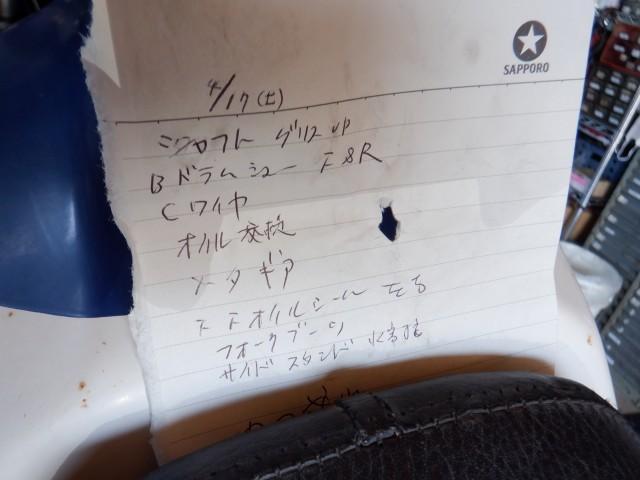 SAPPORO
4/17(土)
グリス UP
B ドラムシュー F&R
C ワイヤ
オイル交換
メータギア
F Fオイルシール 左右
フォークブーツ
サイドスタンド